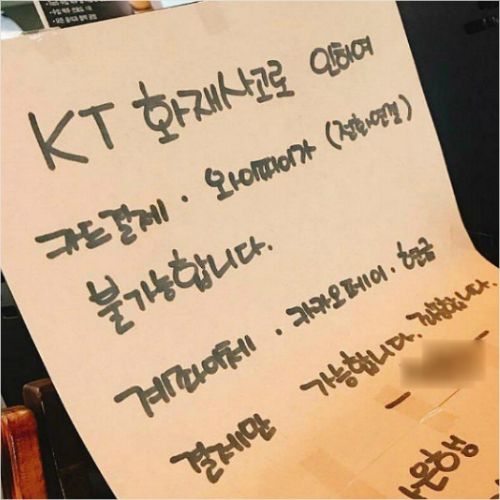 KT 화재사고로 인하여
카드결제 · 와이파이가 (전화연결)
불가능합니다.
계좌이체 · 카카오페이 · 현금
결제만 가능합니다. 감사합니다.
은행